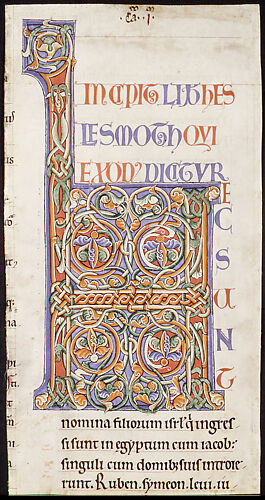 INCIPIT LIB HES
LES MOTH QVI
EXOD' DICITVR
ECSUNT
nomina filiorum isrl' q' ingres
si sunt in egyptum cum iacob:
singuli cum domib; suis introie
runt. Ruben. symeon. leui. iu